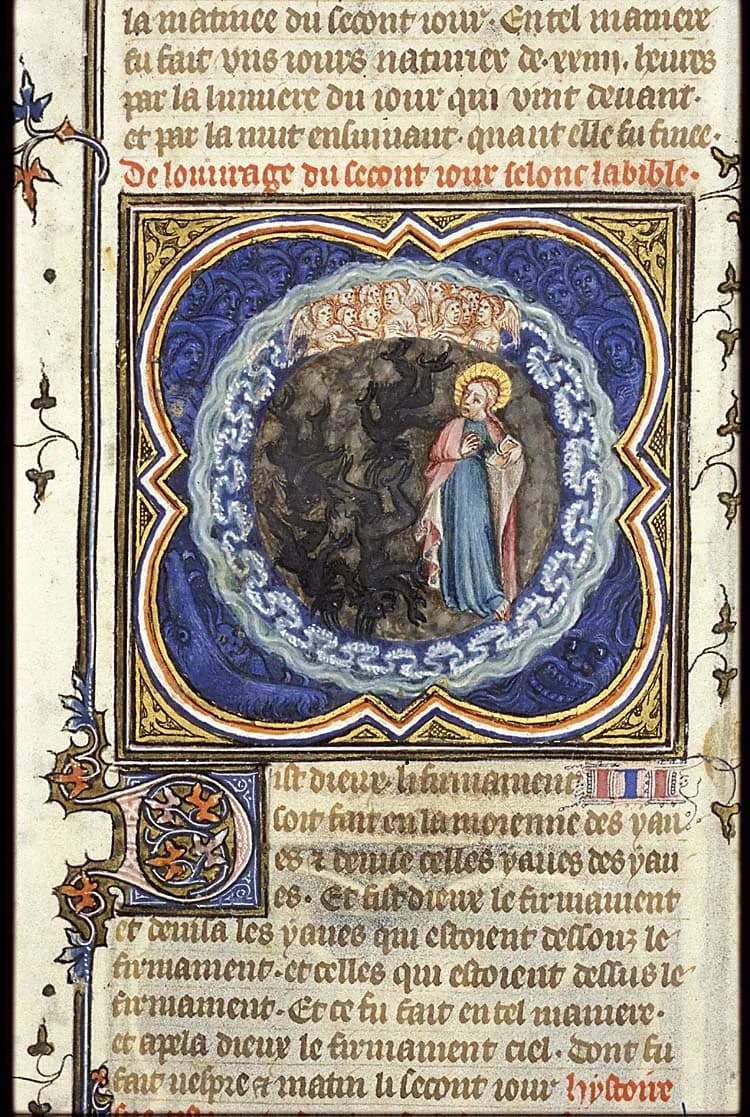 la matinee du secont iour. En tel maniere
fu fait uns iours naturiex de .xxiiij. heures
par la lumiere du iour qui vint deuant.
et par la nuit ensuiuant. quant elle fu finee.
De louurage du secont iour selonc la bible.
Dist dieux. li firmament
soit fait en la moienne des yau
es & deuise celles yaues des yau
es. Et fist dieux le firmament
et deuisa les yaues qui estoient dessouz le
firmament. et celles qui estoient dessus le
firmament. Et ce fu fait en tel maniere.
et apela dieux le firmament ciel. Dont fu
fait uespre & matin li secont iour hystoire